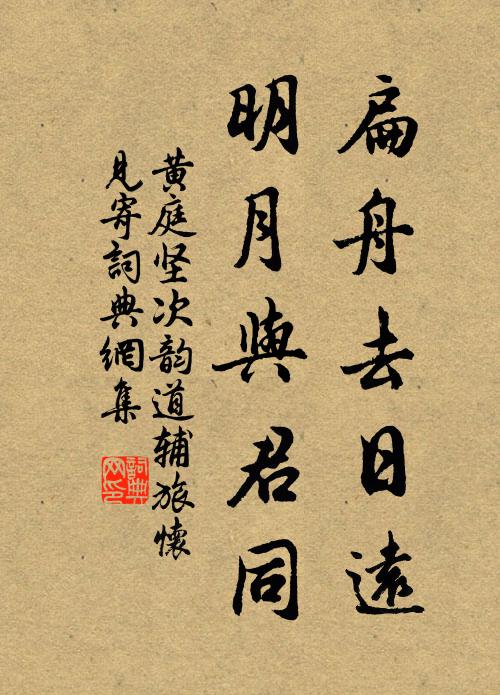 扁舟去日遠
明月與君同
黄庭坚次韵道辅旅懷
見寄詞典網集
詞典
网印